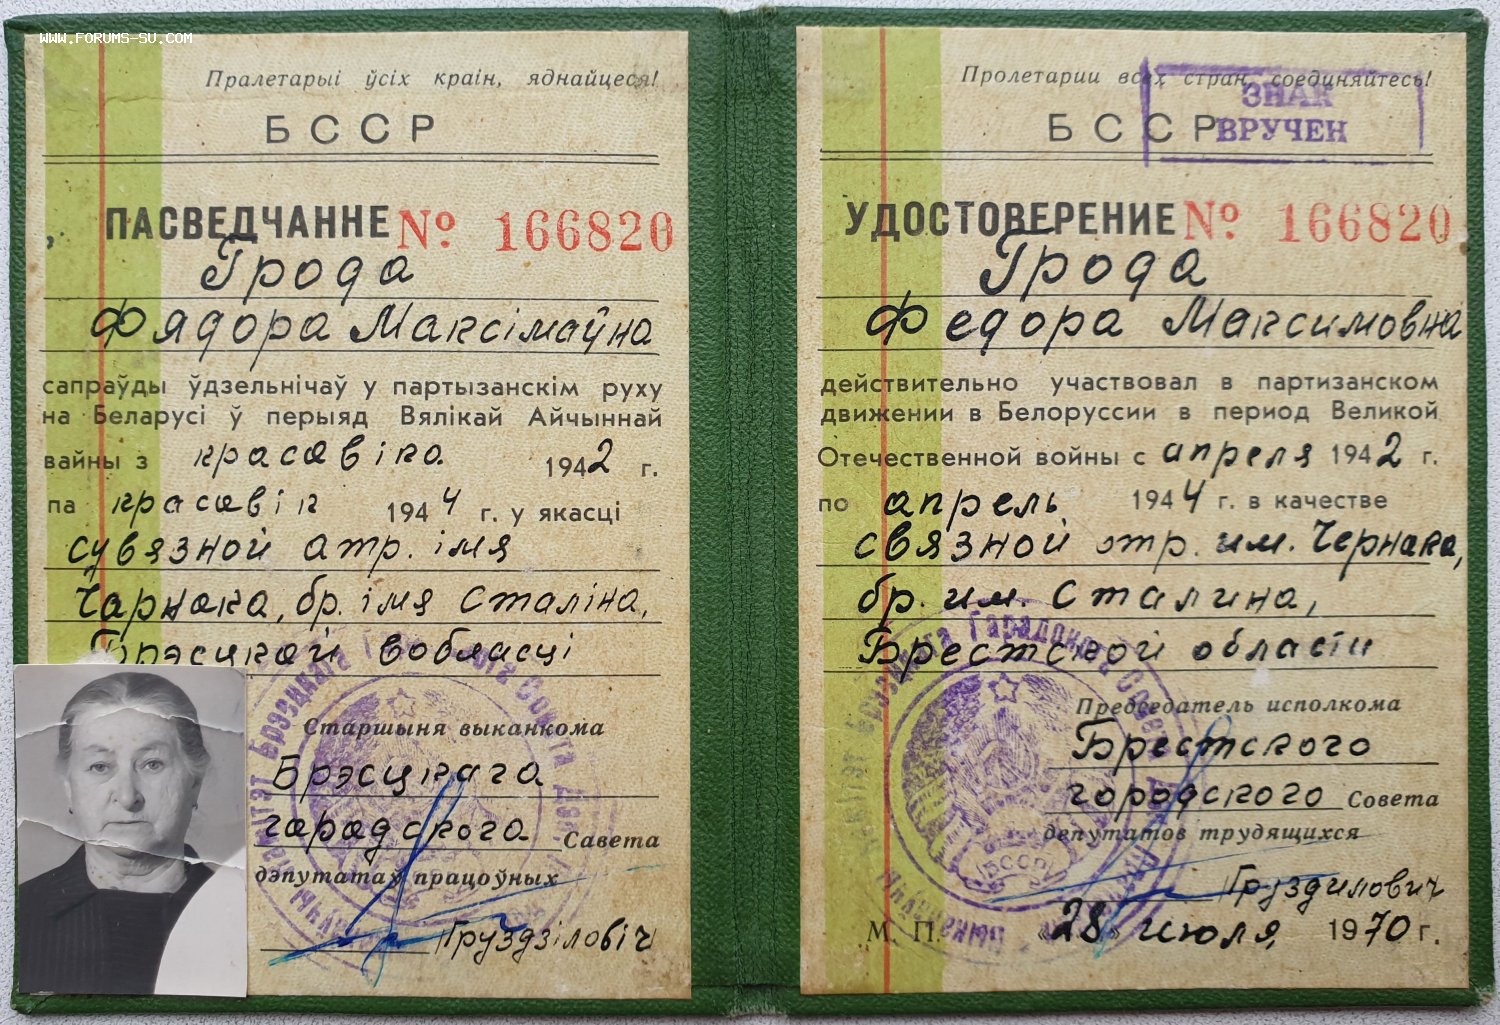 www.forums-su.com
Пралетарыі ўсіх краін, яднайцеся!
БССР
ПАСВЕДЧАННЕ № 166820
Грода
Фядора Максімаўна
сапраўды ўдзельнічаў у партызанскім руху
на Беларусі ў перыяд Вялікай Айчыннай
вайны з красавіка 1942 г.
па красавік 1944 г. у якасці
сувязной атр. імя
Чарнака, бр. імя Сталіна,
Брэсцкой вобласці
Старшыня выканкома
Брэсцкага
гарадского Савета
дэпутатаў працоўных
Груздзіловіч
Пролетарии всех стран, соединяйтесь!
БССР
ЗНАК
ВРУЧЕН
УДОСТОВЕРЕНИЕ № 166820
Грода
Федора Максимовна
действительно участвовал в партизанском
движении в Белоруссии в период Великой
Отечественной войны с апреля 1942 г.
по апрель 1944 г. в качестве
связной отр. им. Чернака,
бр. им. Сталина,
Брестской области
Председатель исполкома
Брестского
городского Совета
депутатов трудящихся
Груздилович
М. П. «28» июля 1970 г.
БССР